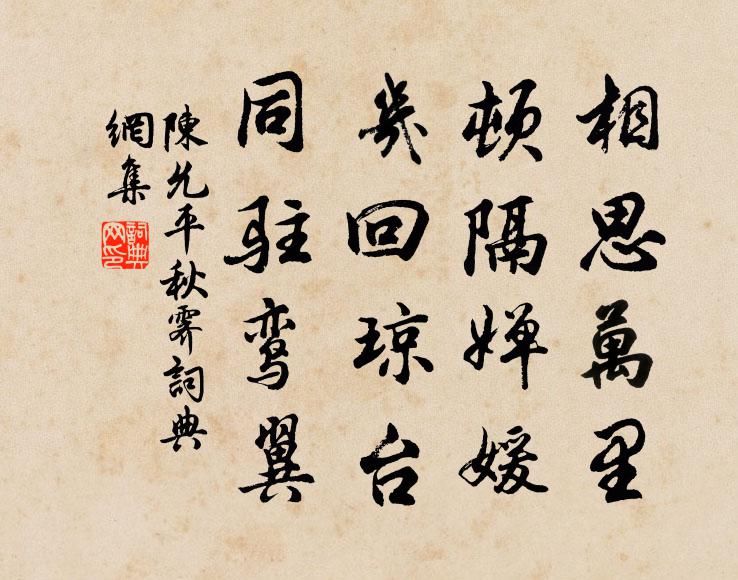 相思萬里
頓隔婵媛
幾回琼台
同驻鸾翼
陳允平秋霽詞典
網集
詞典
网印